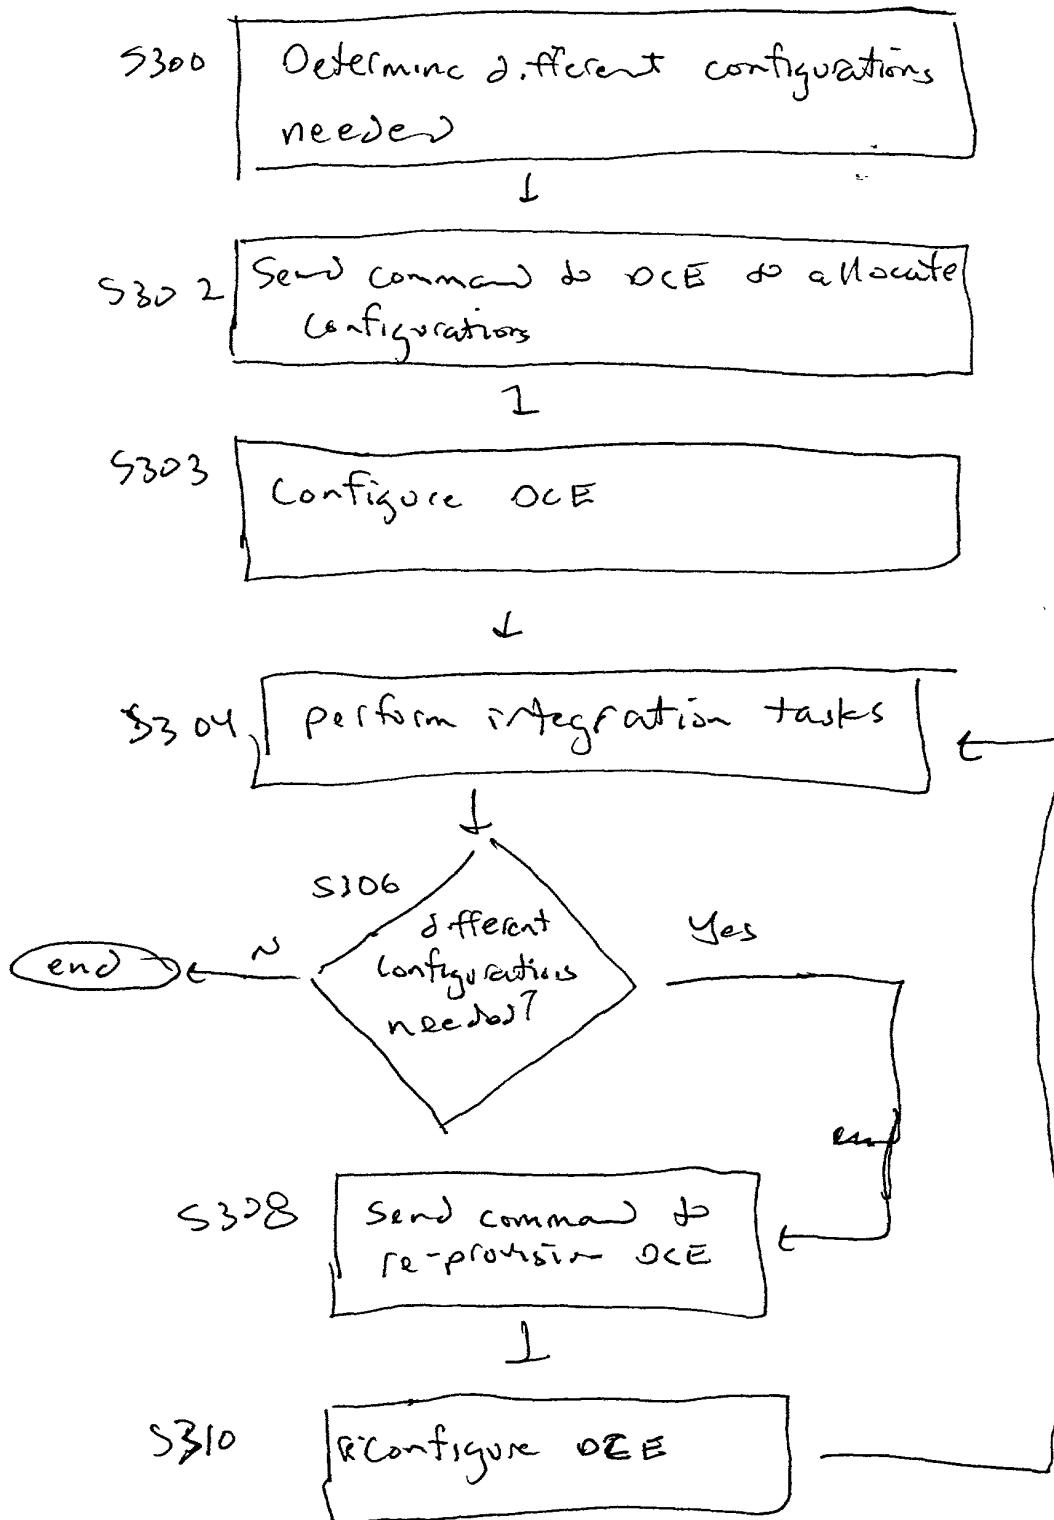 S300
Determine different configurations
needed
S302
Send command to DCE to allocate
configurations
S303
Configure DCE
S304
perform integration tasks
S306
different
configurations
needed?
N
end
Yes
S308
Send command to
re-provision DCE
S310
Reconfigure DCE